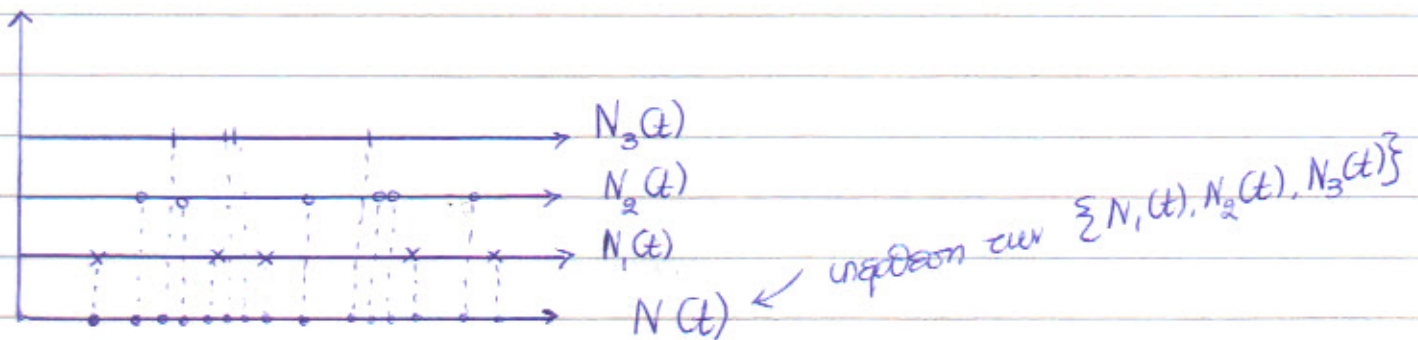 N₃(t)
N₂(t)
N₁(t)
N(t)
υπέρθεση των {N₁(t), N₂(t), N₃(t)}